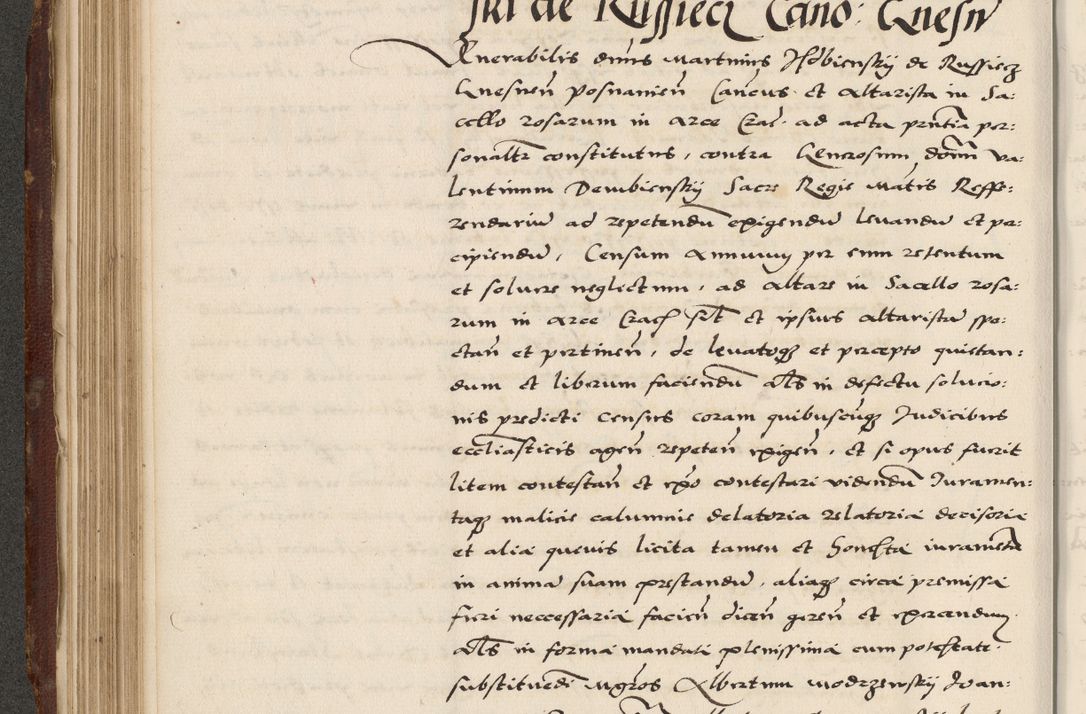 ski de Russiecz Cano: Gnesn
Venerabilis dnus Martinus Isdbienskij de Russiecz
Gnesnen Posnanien Cancus et altarista in Sa:
cello rosarum in arce Crac ad acta pntia per:
sonaltr constitutus, contra Generosum domn Va:
lentinum Dembienskij Sacre Regie Matis Reffe:
rendariu ad repetendu exigendu levandu et pa:
cipiendu, Censum Annuum per eum retentum
et solvere neglectum, ad altare in Sacello rosa:
rum in arce Crac situ et ipsius altaristam spe:
ctan et pertinen, de levatoq et percepto quietan:
dum et liberum faciendu als in defectu solucio:
nis predicti census coram quibuscuq Iudicibus
eccliasticis agen repeten exigen, et si opus fuerit
litem contestan et expo contestari videndu Iuramen:
taq malicie calumnie delatoria relatoria decisoria
et alia quevis licita tamen et honesta iuramenta
in anima suam prestandu, aliaq circa premissa
fieri neccessaria facien dicen geren et exercendum
als in forma mandati plenissima cum potestate
substituedi Mgros Albertum Modrzewskij Ioan: